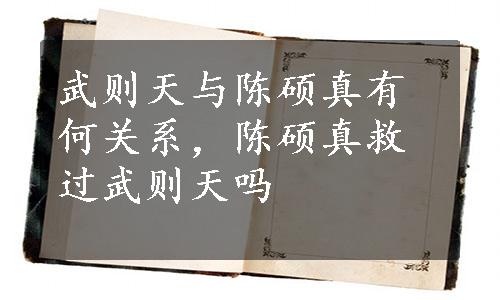 武则天与陈硕真有
何关系，陈硕真救
过武则天吗